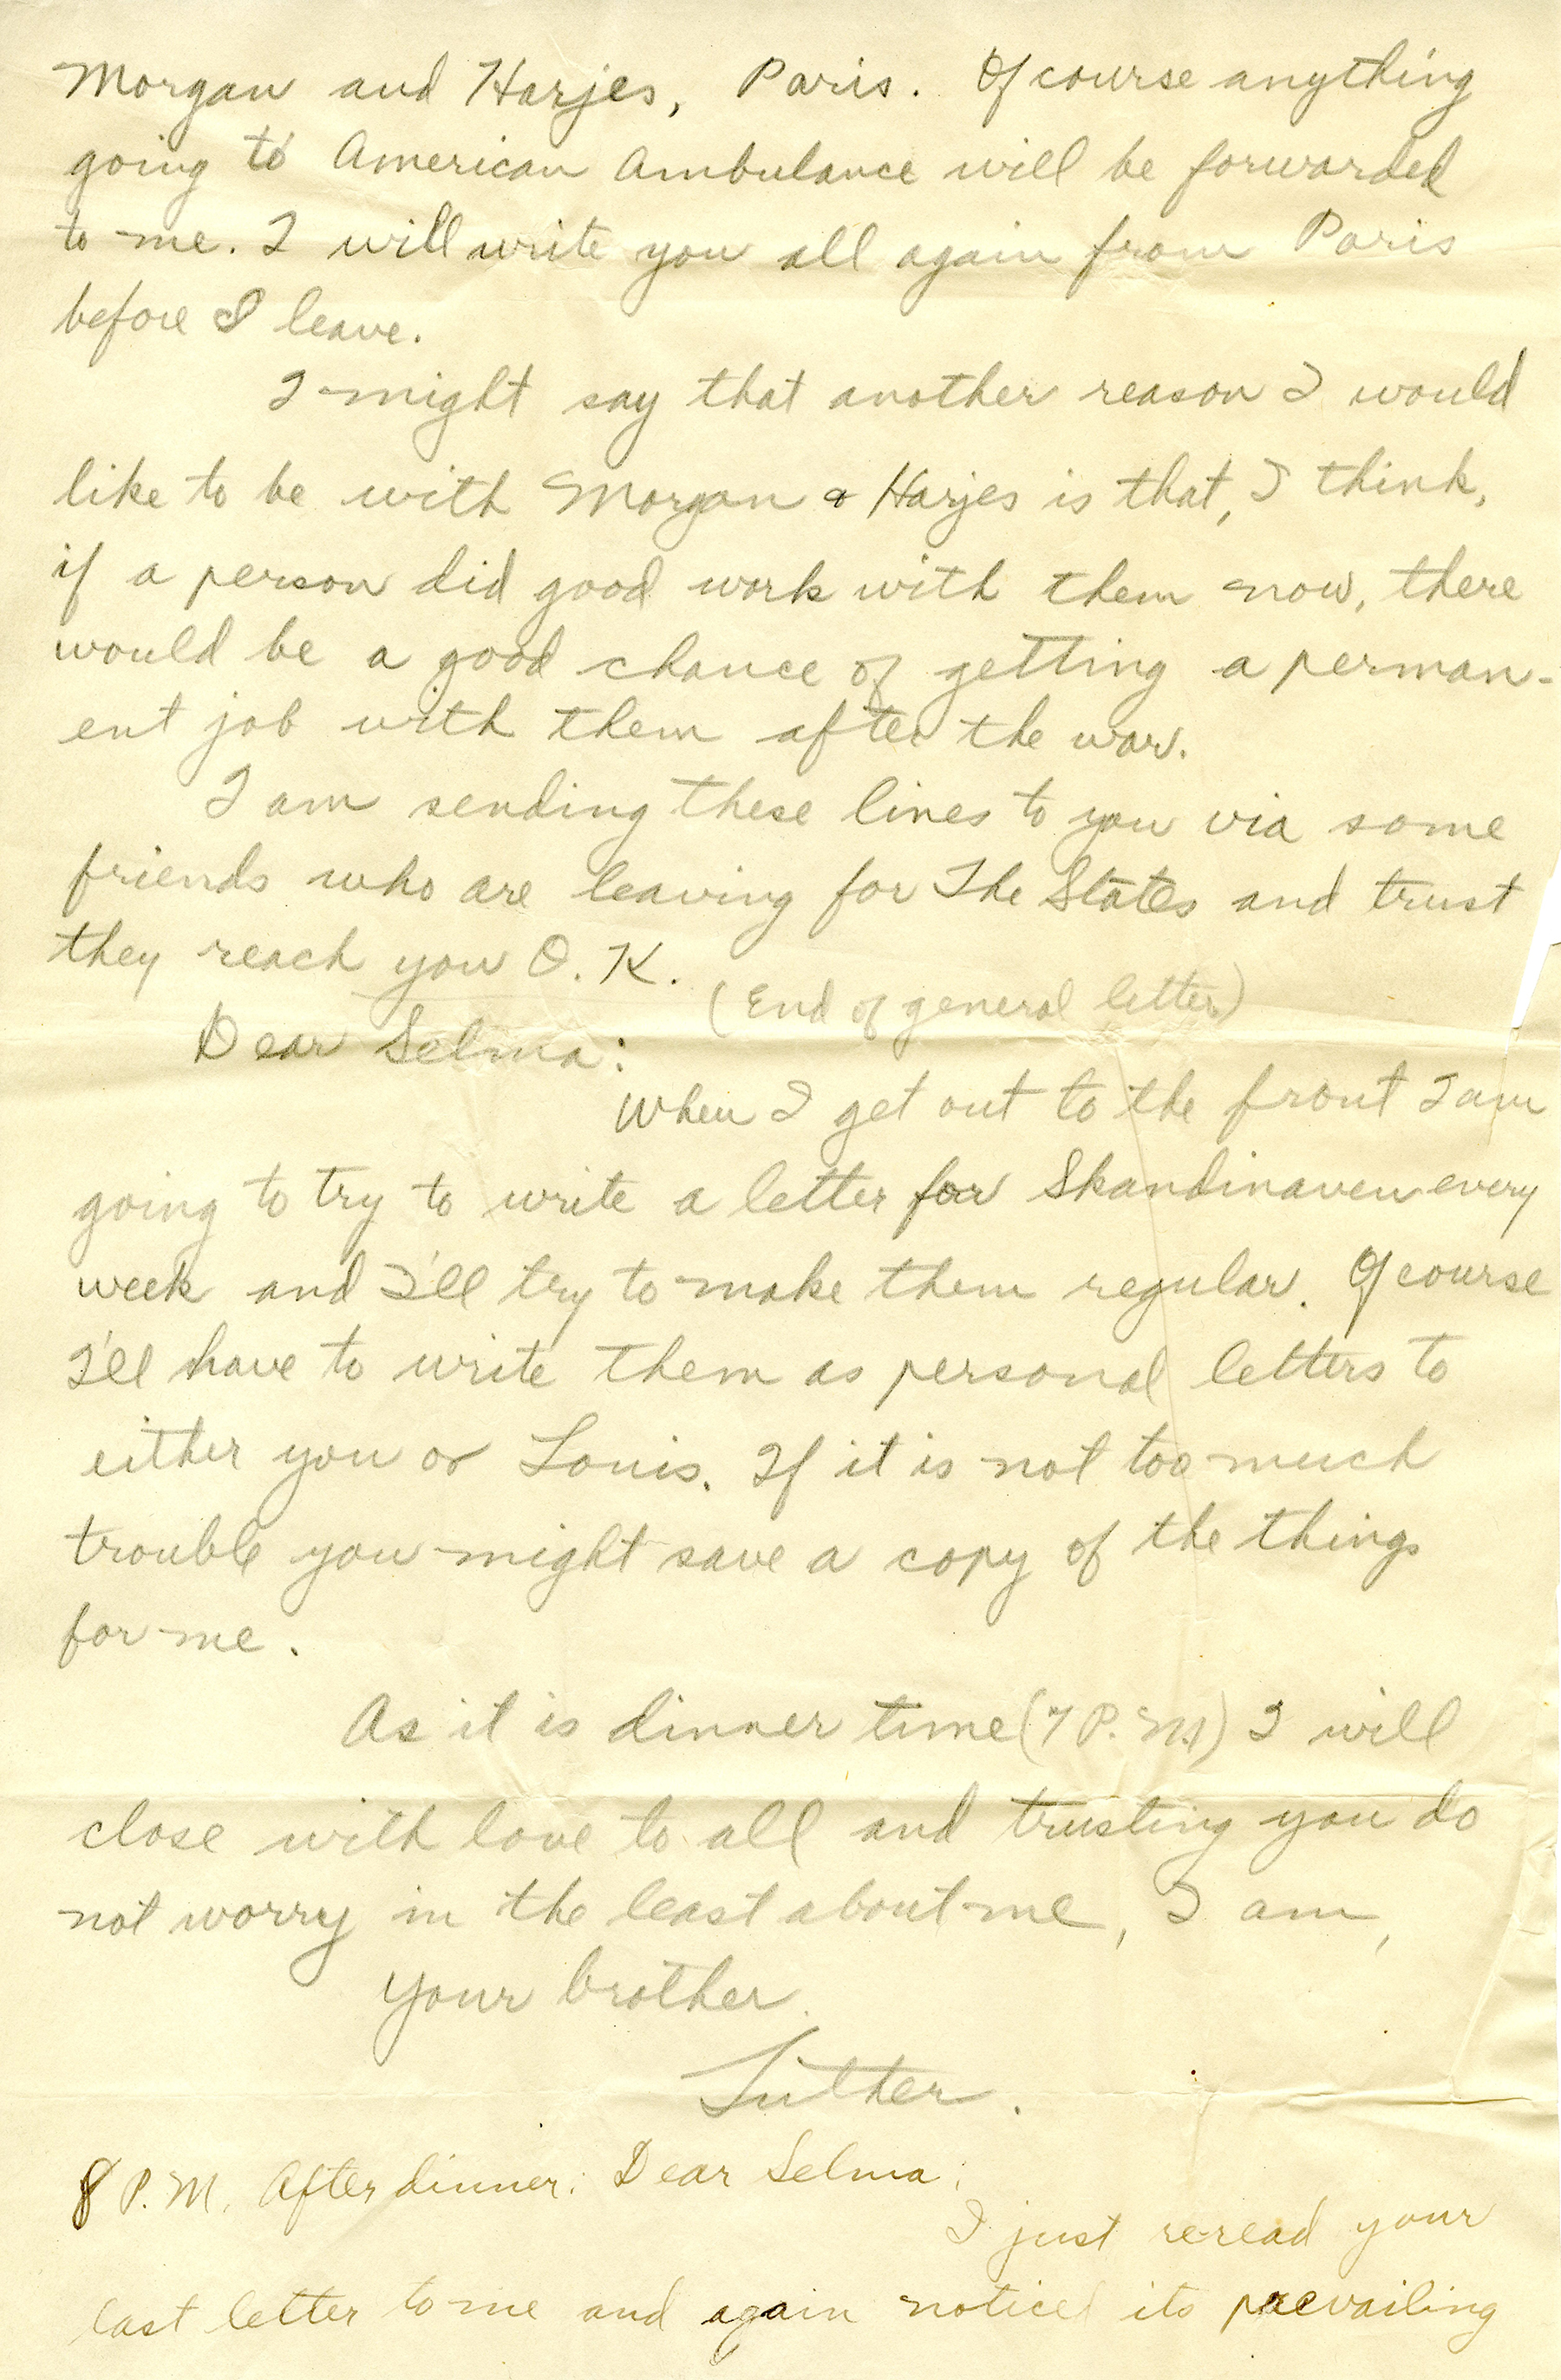 Morgan and Harjes, Paris. Of course anything
going to American Ambulance will be forwarded
to me. I will write you all again from Paris
before I leave.
I might say that another reason I would
like to be with Morgan & Harjes is that, I think,
if a person did good work with them now, there
would be a good chance of getting a perman-
ent job with them after the war.
I am sending these lines to you via some
friends who are leaving for The States and trust
they reach you O.K.
(End of general letter)
Dear Selma:
When I get out to the front I am
going to try to write a letter for Skandinaven every
week and I'll try to make them regular. Of course
I'll have to write them as personal letters to
either you or Louis. If it is not too much
trouble you might save a copy of the things
for me.
As it is dinner time (7 P.M.) I will
close with love to all and trusting you do
not worry in the least about me, I am,
Your brother
Luther.
8 P.M. After dinner: Dear Selma:
I just re-read your
last letter to me and again noticed its prevailing